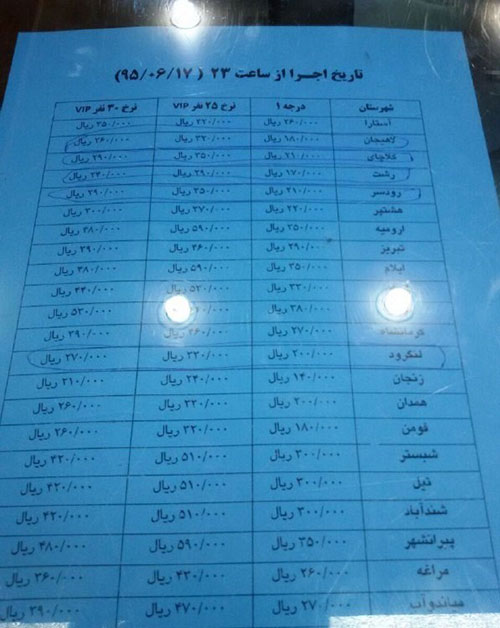 تاریخ اجرا از ساعت ۲۳ (۹۵/۰۶/۱۷)
شهرستان درجه ۱ نرخ ۲۵ نفر VIP نرخ ۳۰ نفر VIP
آستارا ۲۶۰/۰۰۰ ریال ۴۲۰/۰۰۰ ریال ۳۵۰/۰۰۰ ریال
لاهیجان ۱۸۰/۰۰۰ ریال ۳۲۰/۰۰۰ ریال ۲۶۰/۰۰۰ ریال
کلاچای ۲۱۰/۰۰۰ ریال ۳۵۰/۰۰۰ ریال ۲۹۰/۰۰۰ ریال
رشت ۱۷۰/۰۰۰ ریال ۲۹۰/۰۰۰ ریال ۲۴۰/۰۰۰ ریال
رودسر ۲۱۰/۰۰۰ ریال ۳۵۰/۰۰۰ ریال ۲۹۰/۰۰۰ ریال
هشتپر ۲۲۰/۰۰۰ ریال ۳۷۰/۰۰۰ ریال ۳۰۰/۰۰۰ ریال
ارومیه ۳۵۰/۰۰۰ ریال ۵۹۰/۰۰۰ ریال ۴۸۰/۰۰۰ ریال
تبریز ۲۹۰/۰۰۰ ریال ۴۶۰/۰۰۰ ریال ۳۹۰/۰۰۰ ریال
ایلام ۳۵۰/۰۰۰ ریال ۵۹۰/۰۰۰ ریال ۴۸۰/۰۰۰ ریال
۳۳۰/۰۰۰ ریال ۵۲۰/۰۰۰ ریال ۴۴۰/۰۰۰ ریال
۳۸۰/۰۰۰ ریال ریال ۵۲۰/۰۰۰ ریال
کرمانشاه ۲۷۰/۰۰۰ ریال ۴۶۰/۰۰۰ ریال ۳۹۰/۰۰۰ ریال
لنگرود ۲۰۰/۰۰۰ ریال ۳۳۰/۰۰۰ ریال ۲۷۰/۰۰۰ ریال
زنجان ۱۴۰/۰۰۰ ریال ۲۴۰/۰۰۰ ریال ۲۱۰/۰۰۰ ریال
همدان ۲۰۰/۰۰۰ ریال ۳۲۰/۰۰۰ ریال ۲۶۰/۰۰۰ ریال
فومن ۱۸۰/۰۰۰ ریال ۳۲۰/۰۰۰ ریال ۲۶۰/۰۰۰ ریال
شبستر ۳۰۰/۰۰۰ ریال ۵۱۰/۰۰۰ ریال ۴۲۰/۰۰۰ ریال
تیل ۳۰۰/۰۰۰ ریال ۵۱۰/۰۰۰ ریال ۴۲۰/۰۰۰ ریال
شندآباد ۳۰۰/۰۰۰ ریال ۵۱۰/۰۰۰ ریال ۴۲۰/۰۰۰ ریال
پیرانشهر ۳۵۰/۰۰۰ ریال ۵۹۰/۰۰۰ ریال ۴۸۰/۰۰۰ ریال
مراغه ۲۶۰/۰۰۰ ریال ۴۳۰/۰۰۰ ریال ۳۶۰/۰۰۰ ریال
میاندوآب ۲۷۰/۰۰۰ ریال ۴۷۰/۰۰۰ ریال ۳۹۰/۰۰۰ ریال